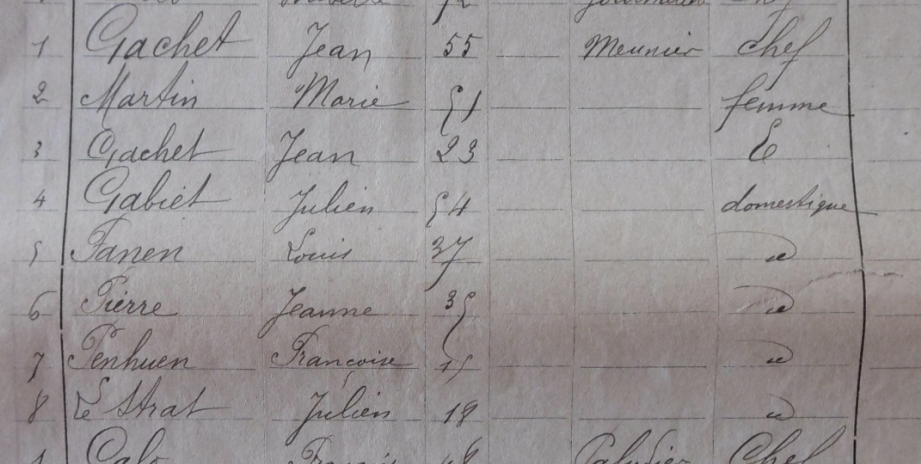 1 Gachet Jean 55 Meunier chef
2 Martin Marie 51 femme
3 Gachet Jean 23 E
4 Gabiet Julien 54 domestique
5 Fanen Louis 37 d
6 Pierre Jeanne 35 d
7 Penhuen Françoise 15 d
8 Le Strat Julien 18 d
1 Calo Chef